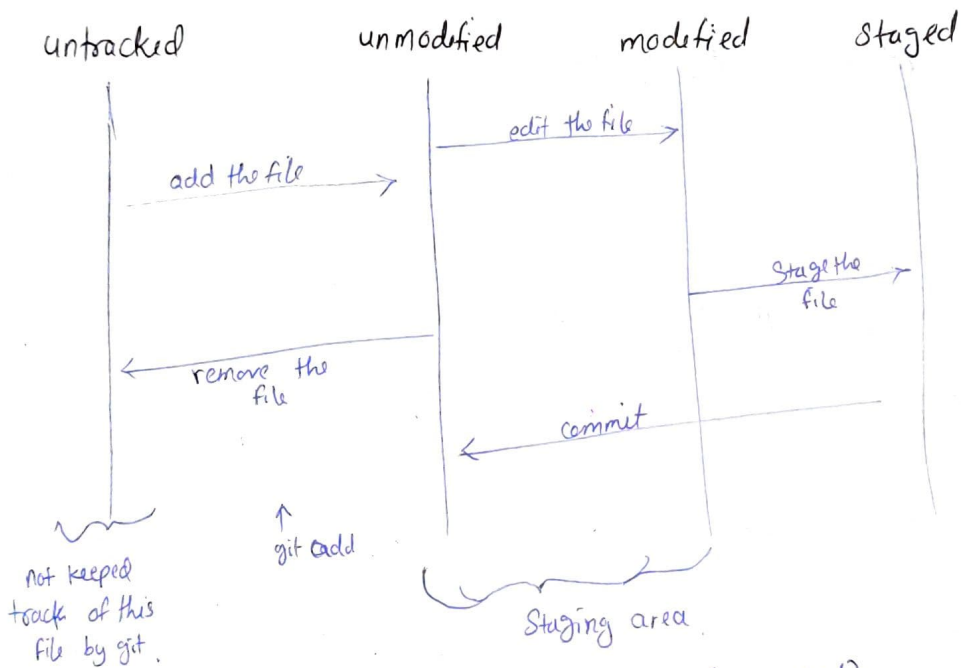 untracked unmodified modified Staged
edit the file
add the file
Stage the
file
remove the
file
commit
git add
not keeped
track of this
file by git.
Staging area